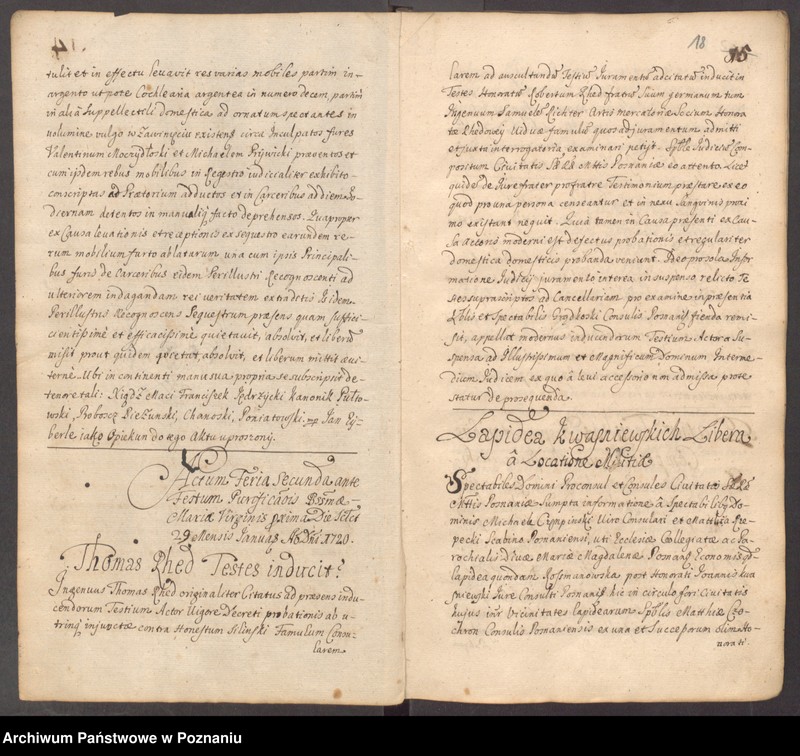 14
tulit et in effectu levavit res varias mobiles partim in
argento ut pote Cochlearia argentea in numero decem, partim
in alia Suppellectili domestica ad ornatum spectantes in
volumine vulgo w Zawinięciu existens circa Inculpatos fures
Valentinum Moczydłoski et Michaelem Pijwicki praeventos et
cum ijsdem rebus mobilibus in Regestro iudicialiter exhibito
conscriptas ad Praetorium adductos et in Carceribus ad diem ho-
diernam detentos in manualij facto deprehensos. Quapropter
ex Causa levationis et receptionis ex sequestro earundem re-
rum mobilium furto ablatarum una cum ipsis Principali-
bus furis de Carceribus eidem Perillustri Recognoscenti ad
ulteriorem indagandam rei veritatem extadetis Idem
Perillustris Recognoscens Sequestrum praesens quam suffici-
cientissime et efficacissime quietavit, absolvit, et liberum
misit prout quidem quietat, absolvit, et liberum mittit aevi-
terne. Ubi in continenti manu sua propria se subscripsit de-
tenore tali: Xiądz Maci Franciszek Jędrzycki Kanonik Pułto-
wski, Proboszcz Bieżunski, Chanoski, Poniatowski. mp Jan Ey-
berle iako Opiekun do tego Aktu uproszony.
Actum Feria Secunda ante
Festum Purificaois Bssmae
Mariae Virginis proxima Die Scilct
29 Mensis Januarij Ao Dni 1720.
Thomas Rhed Testes inducit.
Ingenuus Thomas Rhed originaliter Citatus ad praesens indu-
cendorum Testium Actor Vigore Decreti probationis ab u-
trinq injunctae contra Honestum Silinski Famulum Conou-
larem
18
15
larem ad auscultandum Testium Juramentum adcitatum inducit in
Testes Honoratum Robertum Rhed fratrem Suum germanum tum
Ingenuum Samuelem Richter Artis mercatoriae Socium Honora-
tae Rhedowey Viduae famulum quos ad juramentum admitti
et juxta interrogatoria examinari petijt. Spble Judicium Com-
positum Civitatis SRM Mttis Posnaniae eo attento, Licet
quidem de Jure frater pro fratre Testimonium praestare ex eo
quod pro una persona censeantur et in nexu Sanguinis proxi
mo existant nequit. Quia tamen in Causa praesenti ex Cau-
sa Actoris moderni est defectus probationis et regulariter
domestica domesticis probanda veniunt. Ideo pro sola Infor-
matione Judicij juramento interea in suspenso relicto. Te-
stes suprascriptos ad Cancellariam pro examine in praesentia
Nobilis et Spectabilis Grodkoski Consulis Posnaniensis fienda remi-
sit, appellat modernus inducendorum Testium Actor a Su-
spensa ad Illustrissimum et Magnificum Dominum Interme-
dium Judicem ex quo a levi accessorio non admissa prote
statur de prosequenda.
Lapidea Kwasniewskich Libera
à Locatione Militiae
Spectabiles Domini Proconsul et Consules Civitatis SRM
Mttis Posnaniae Sumpta informatione à Spectabilibus Do-
minis Michaele Czypinski Viro Consulari et Matthia Rze-
pecki Scabino Posnaniensi, uti Ecclesiae Collegiatae ac Pa-
rochialis Divae Mariae Magdalenae Posnaniensis Economis qd
lapidea quondam Rossmanowska post Honorati Joannis Kwa
sniewski Jure Consulti Posnaniensis hic in circulo fori Civitatis
hujus intr Vicinitates lapidearum Spblis Matthiae Czo-
chron Consulis Posnaniensis ex una et Succeporum olim Ho-
norati
Archiwum Państwowe w Poznaniu